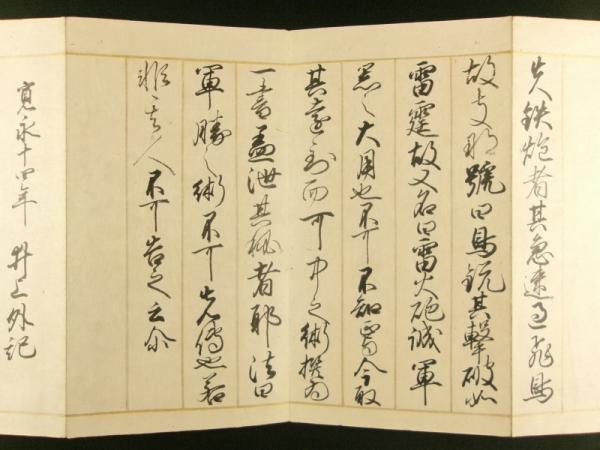 夫鉄炮者其急速過飛鳥
故支那號曰鳥銃其擊破如
雷霆故又名曰雷火砲誠軍
器之大用也不可不知焉今取
其遠到而可中之術撰為
一書盖泄其機者耶法曰
軍勝之術不可先傳也若
非其人不可告之云尓
寛永十四年 井上外記